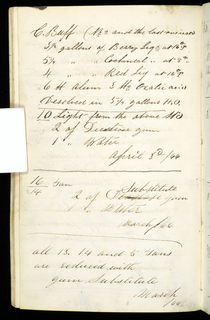 C. Buff (No 2 and the last one used
5¼ gallons of Berry Liq at 16°
5¼ " " Cochineal " at 8°
4 " " Red Liq at 16°
6 lb Alum 3 lb Oxalic acid
Dissolved in 5¼ gallons H.O.
10 Light from the above Std
2 of Dextrine gum
1 " Water
April 5th/66
16 Tan
14 2 of Substitute gum
" Water
March/66
all 13, 14 and 5 Tans
are reduced with
gum Substitute
March
/66